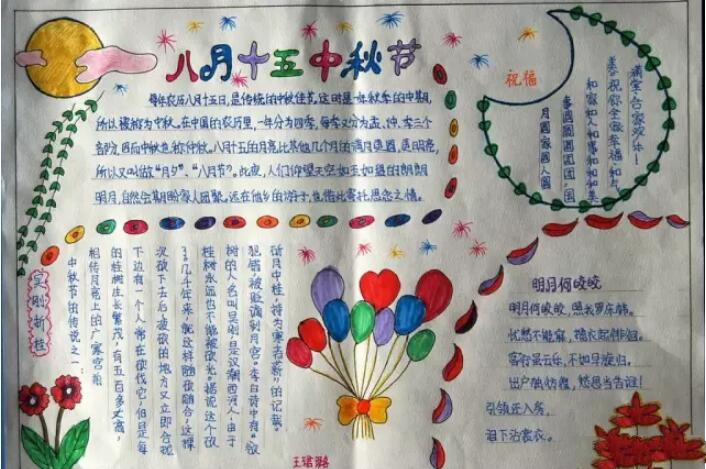 八月十五中秋节
每年农历八月十五日,是传统的中秋佳节。这时是一年秋季的中期,
所以被称为中秋。在中国的农历里,一年分为四季,每季又分为孟、仲、季三个
部分,因而中秋也称仲秋。八月十五的月亮比其他几个月的满月更圆,更明亮,
所以又叫做“月夕”,“八月节”。此夜,人们仰望天空如玉如盘的朗朗
明月,自然会期盼家人团聚。远在他乡的游子,也借此寄托思念之情。
祝福
满堂合家欢乐!
美祝你全家幸福和气
和家和人和事和和和美
事圆圆圆团团圆,国
月圆家圆人圆
吴刚折桂
中秋节的传说之一:
相传月亮上的广寒宫前
的桂树生长繁茂,有五百多丈高,
下边有一个人常在砍伐它,但是每
次砍下去后,被砍的地方又立即合拢
了。几千年来,就这样随砍随合,这棵
桂树永远也不能被砍光。据说这个砍
树的人名叫吴刚,是汉朝西河人,由于
犯错,被贬谪到月宫。李白诗中有“欲
斫月中桂,持为寒者薪”的记载。
明月何皎皎
明月何皎皎,照我罗床帏。
忧愁不能寐,揽衣起徘徊。
客行虽云乐,不如早旋归。
出户独彷徨,愁思当告谁!
引领还入房,
泪下沾裳衣。
王珺